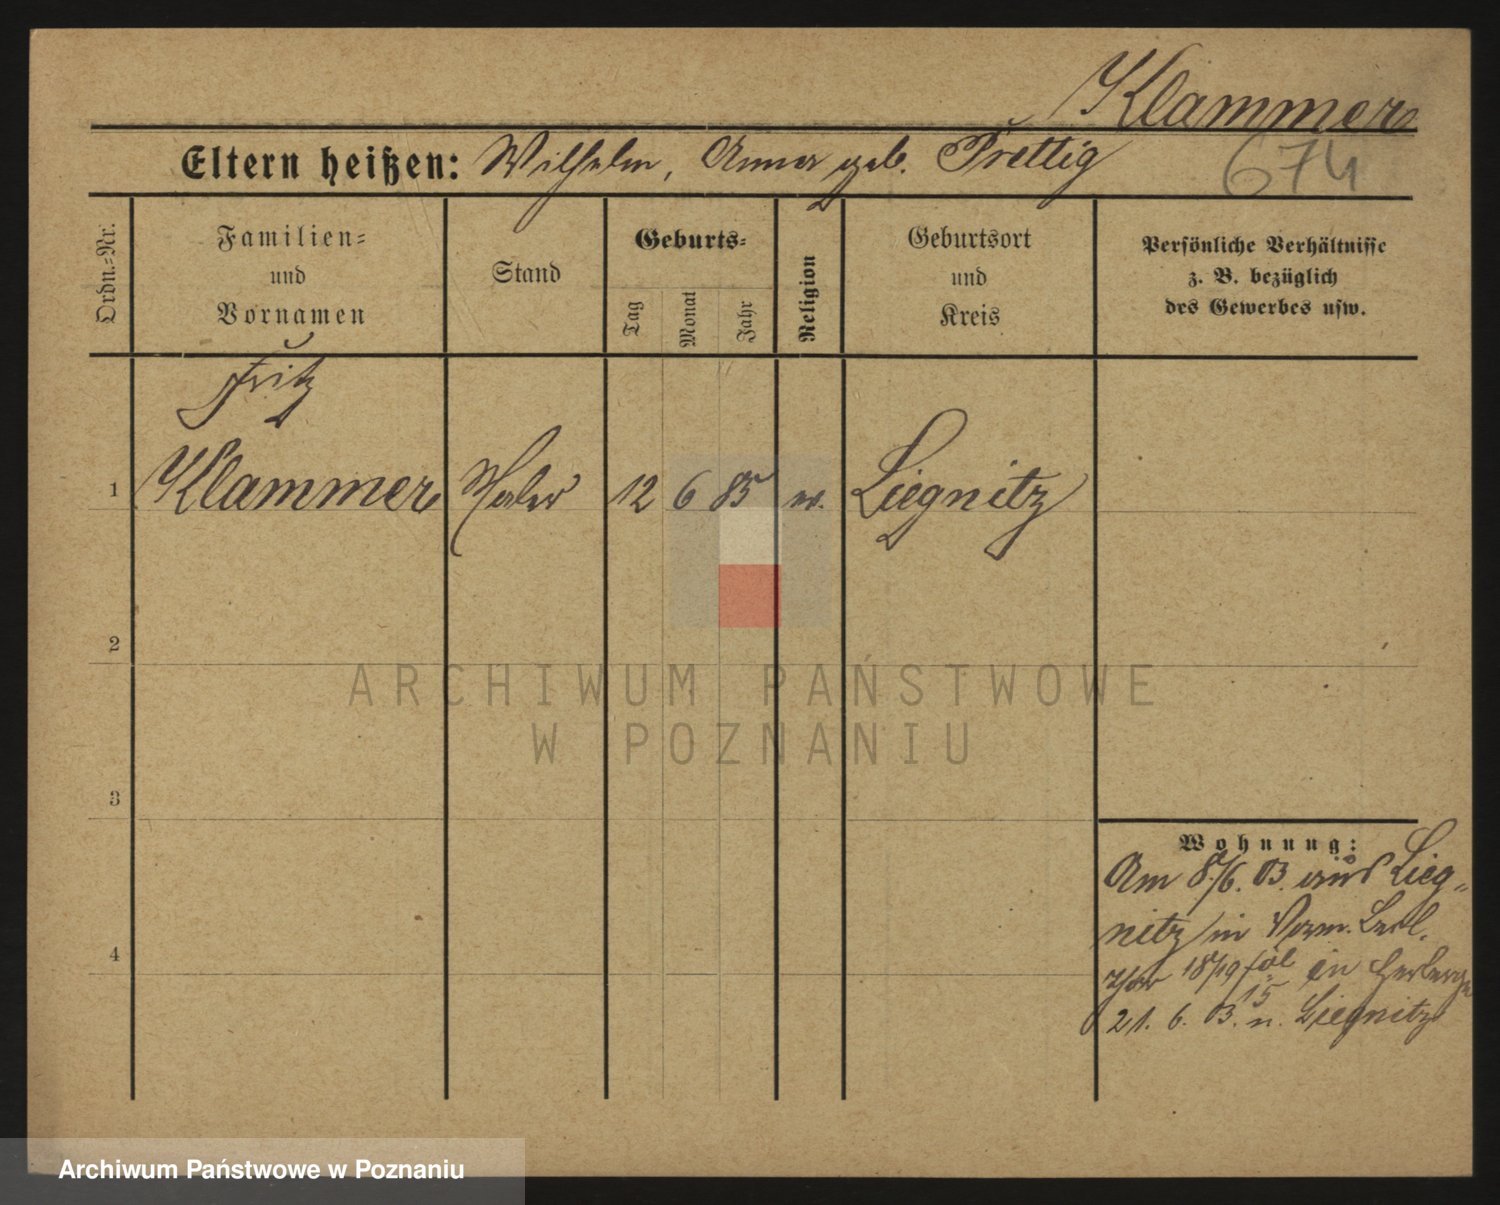 Klammer
Eltern heißen: Wilhelm, Anna geb. Prettig
674
Ordn.=Nr.
Familien=
und
Vornamen
Stand
Geburts=
Tag
Monat
Jahr
Religion
Geburtsort
und
Kreis
Persönliche Verhältnisse
z. B. bezüglich
des Gewerbes usw.
Fritz
1 Klammer Maler 12 6 85 ev. Liegnitz
2
3
4
Wohnung:
Am 8./6. 03. aus Lieg=
nitz in
18/19 in Herberge
15
21. 6. 03. n. Liegnitz
ARCHIWUM PAŃSTWOWE
W POZNANIU
Archiwum Państwowe w Poznaniu